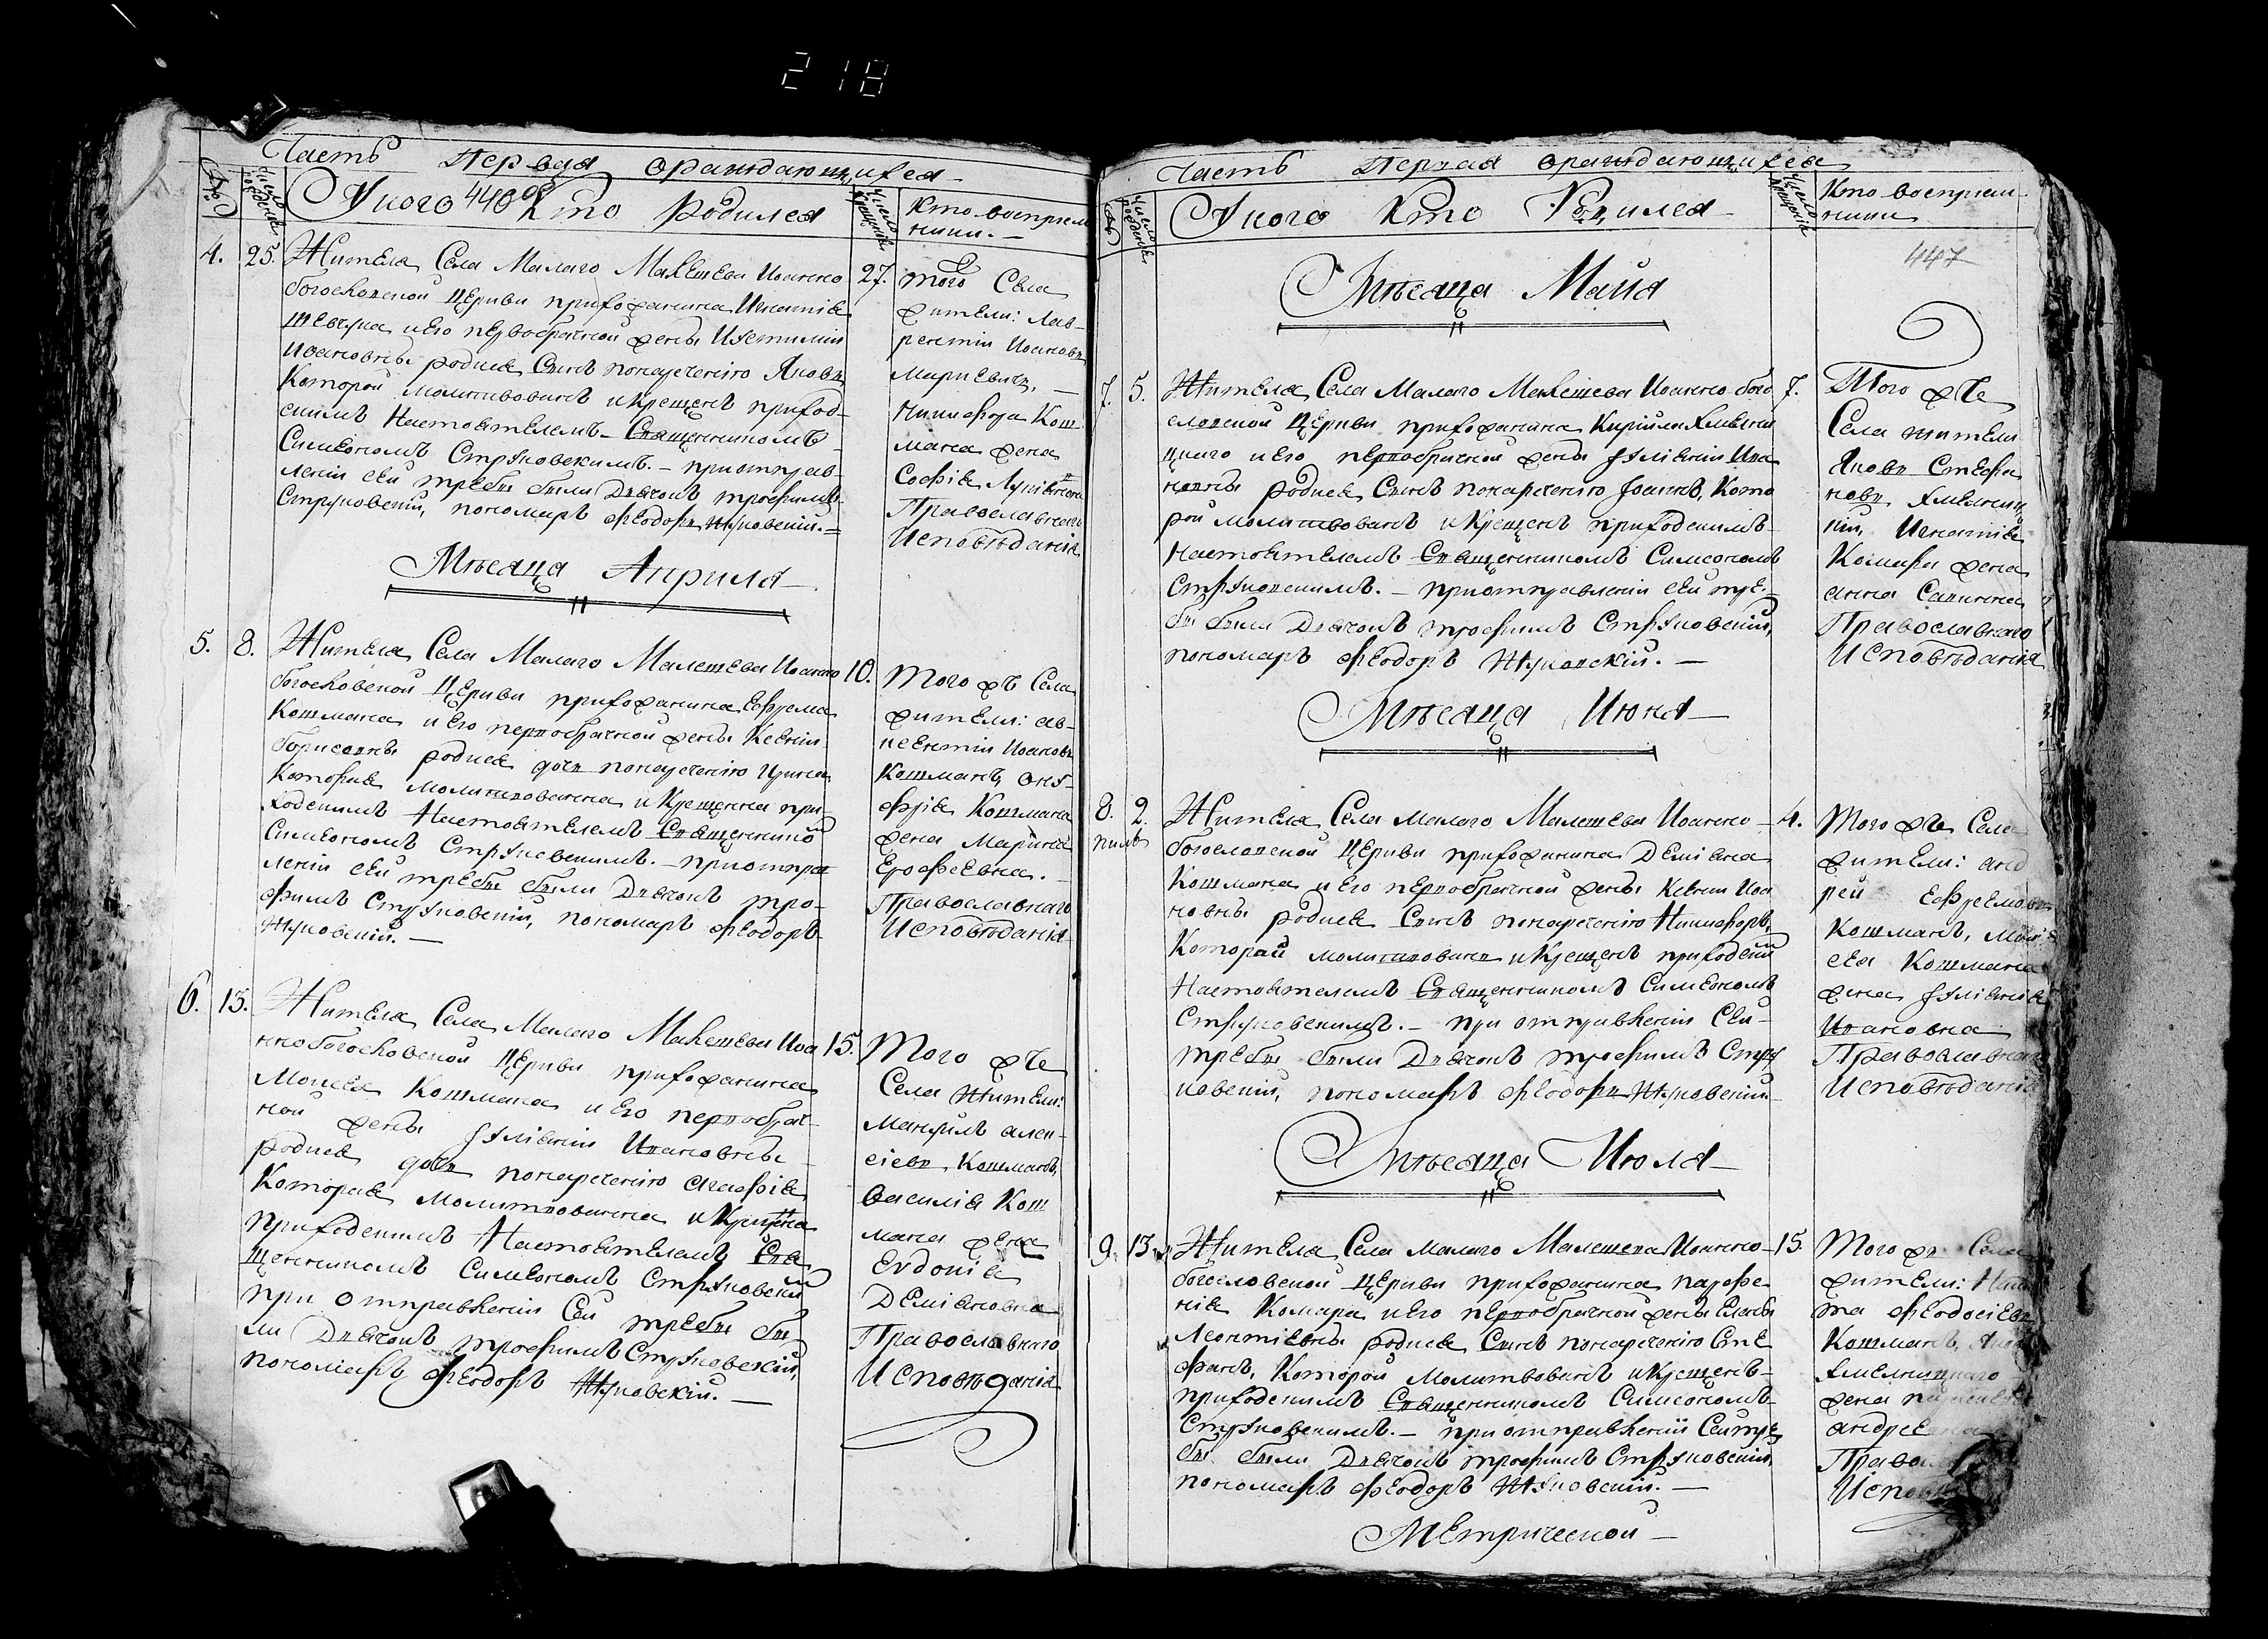 218
Часть Первая ораждающихся
Число рождения
Число крещения
У кого 440об Кто Родился
Кто восприем
ники.
4. 25. Жителя Села Малаго Малешева Иоанно
богословской Церкви прихожанина Игнатія
Шевчука и Его первобрачной жены
Иоановны родися Сынъ понаречению Яковъ
Которой молитвованъ и Крещенъ приход-
скимъ Настоятелемъ Священникомъ
Симеономъ Струковскимъ. – при отправ-
лении сей требы были Дьячокъ трофимъ
Струковскій, пономаръ феодоръ Жуковскій. –
27. того Села
жители: Лав-
рентій Иоановъ
Никифора Кош
мана жена
Софія
Православнаго
Исповѣданія
Мѣсяца Априля
5. 8. Жителя Села Малаго Малешева Иоанно
богословской Церкви прихожанина Ефрема
Кошмана и Его первобрачной жены Ксеніи
борисовны родися дочь понаречению Ирина
Которая молитвованна и Крещенна при-
ходскимъ Настоятелемъ Священнико
Симеономъ Струковскимъ. – при отпра
лении сей требы были Дьячокъ тро-
фимъ Струковскій, пономаръ феодоръ
Жуковскій. –
10. того жъ Села
жители: ав-
ксентій Иоановъ
Кошманъ,Ону-
фрія Кошмана
жена Марина
Ерофеевна. –
Православнаго
Исповѣданія
6. 13. Жителя Села Малаго Малешева Иоа
нно богословской Церкви прихожанина
Моисея Кошмана и Его первобрач-
ной жены Іуліаніи Ивановны
родися дочь понаречению агафія
Которая Молитвованна и Крещена
приходскимъ Настоятелемъ Свя
щенникомъ Симеономъ Струковски
при отправленіи Сей требы бы
ли Дьячокъ трофимъ Струковскій,
пономаръ феодоръ Жуковскій. –
15. того же
Села жители:
Мануилъ алек-
сіевъ, Кошманъ,
василія Кош
мана жена
Евдокія
Деміановна
Православнаго
Исповѣданія
Часть Первая ораждающихся
Число рождения
Число крещения
У кого Кто Родился
Кто восприем-
ники
447
Мѣсяца Майя
7. 5. Жителя Села Малаго Малешева Иоанно бого
словской Церкви прихожанина Кирила Хмелни
цкаго и Его первобрачной жены Іуліаніи Ива
новны родися Сынъ понаречению Іоаннъ, Кото
рой молитвованъ и Крещенъ приходскимъ
Настоятелемъ Священникомъ Симеономъ
Струковскимъ. – при отправленіи Сей тре-
бы были Дьячокъ трофимъ Струковскій,
пономаръ феодоръ Жуковскій. –
7. Того же
Села жители
Яковъ Стефа
новъ Хмелниц
кій, Игнатія
Комара жена
анна Савинна
Православнаго
Исповѣданія
Мѣсяца Июня
8. 2. Жителя Села Малаго Малешева Иоанно –
богословской Церкви прихожанина Деміана
Кошмана и Его первобрачной жены Ксении Иоа
новны родися Сынъ понаречению Никифоръ,
Которай молитвованъ и Крещенъ приходски
Настоятелемъ Священникомъ Симеономъ
Струковскимъ. – при отправленіи Сей –
требы были Дьячокъ трофимъ Стру
ковскій, пономаръ феодоръ Жуковскій
4. того жъ Села
жители: анд
рей Ефремовъ
Кошманъ, Мои
сея Кошмана
жена Іуліанія
Ивановна
Православнаго
Исповѣданія
Мѣсяца Июля
9. 13. Жителя Села Малаго Малешева Иоанно –
богословской Церкви прихожанина парфе
нія Комара и Его первобрачной жены
Леонтіевны родися Сынъ понаречению Сте
фанъ, Которой Молитвованъ и Крещенъ
приходскимъ Священникомъ Симеономъ
Струковскимъ. – при отправленіи Сей тре
бы были Дьячокъ трофимъ Струковскій,
пономаръ феодоръ Жуковскій. –
15. того жъ Села
жители:
та феодосіевъ
Кошманъ,
Хмелницкаго
жена
Метрической –